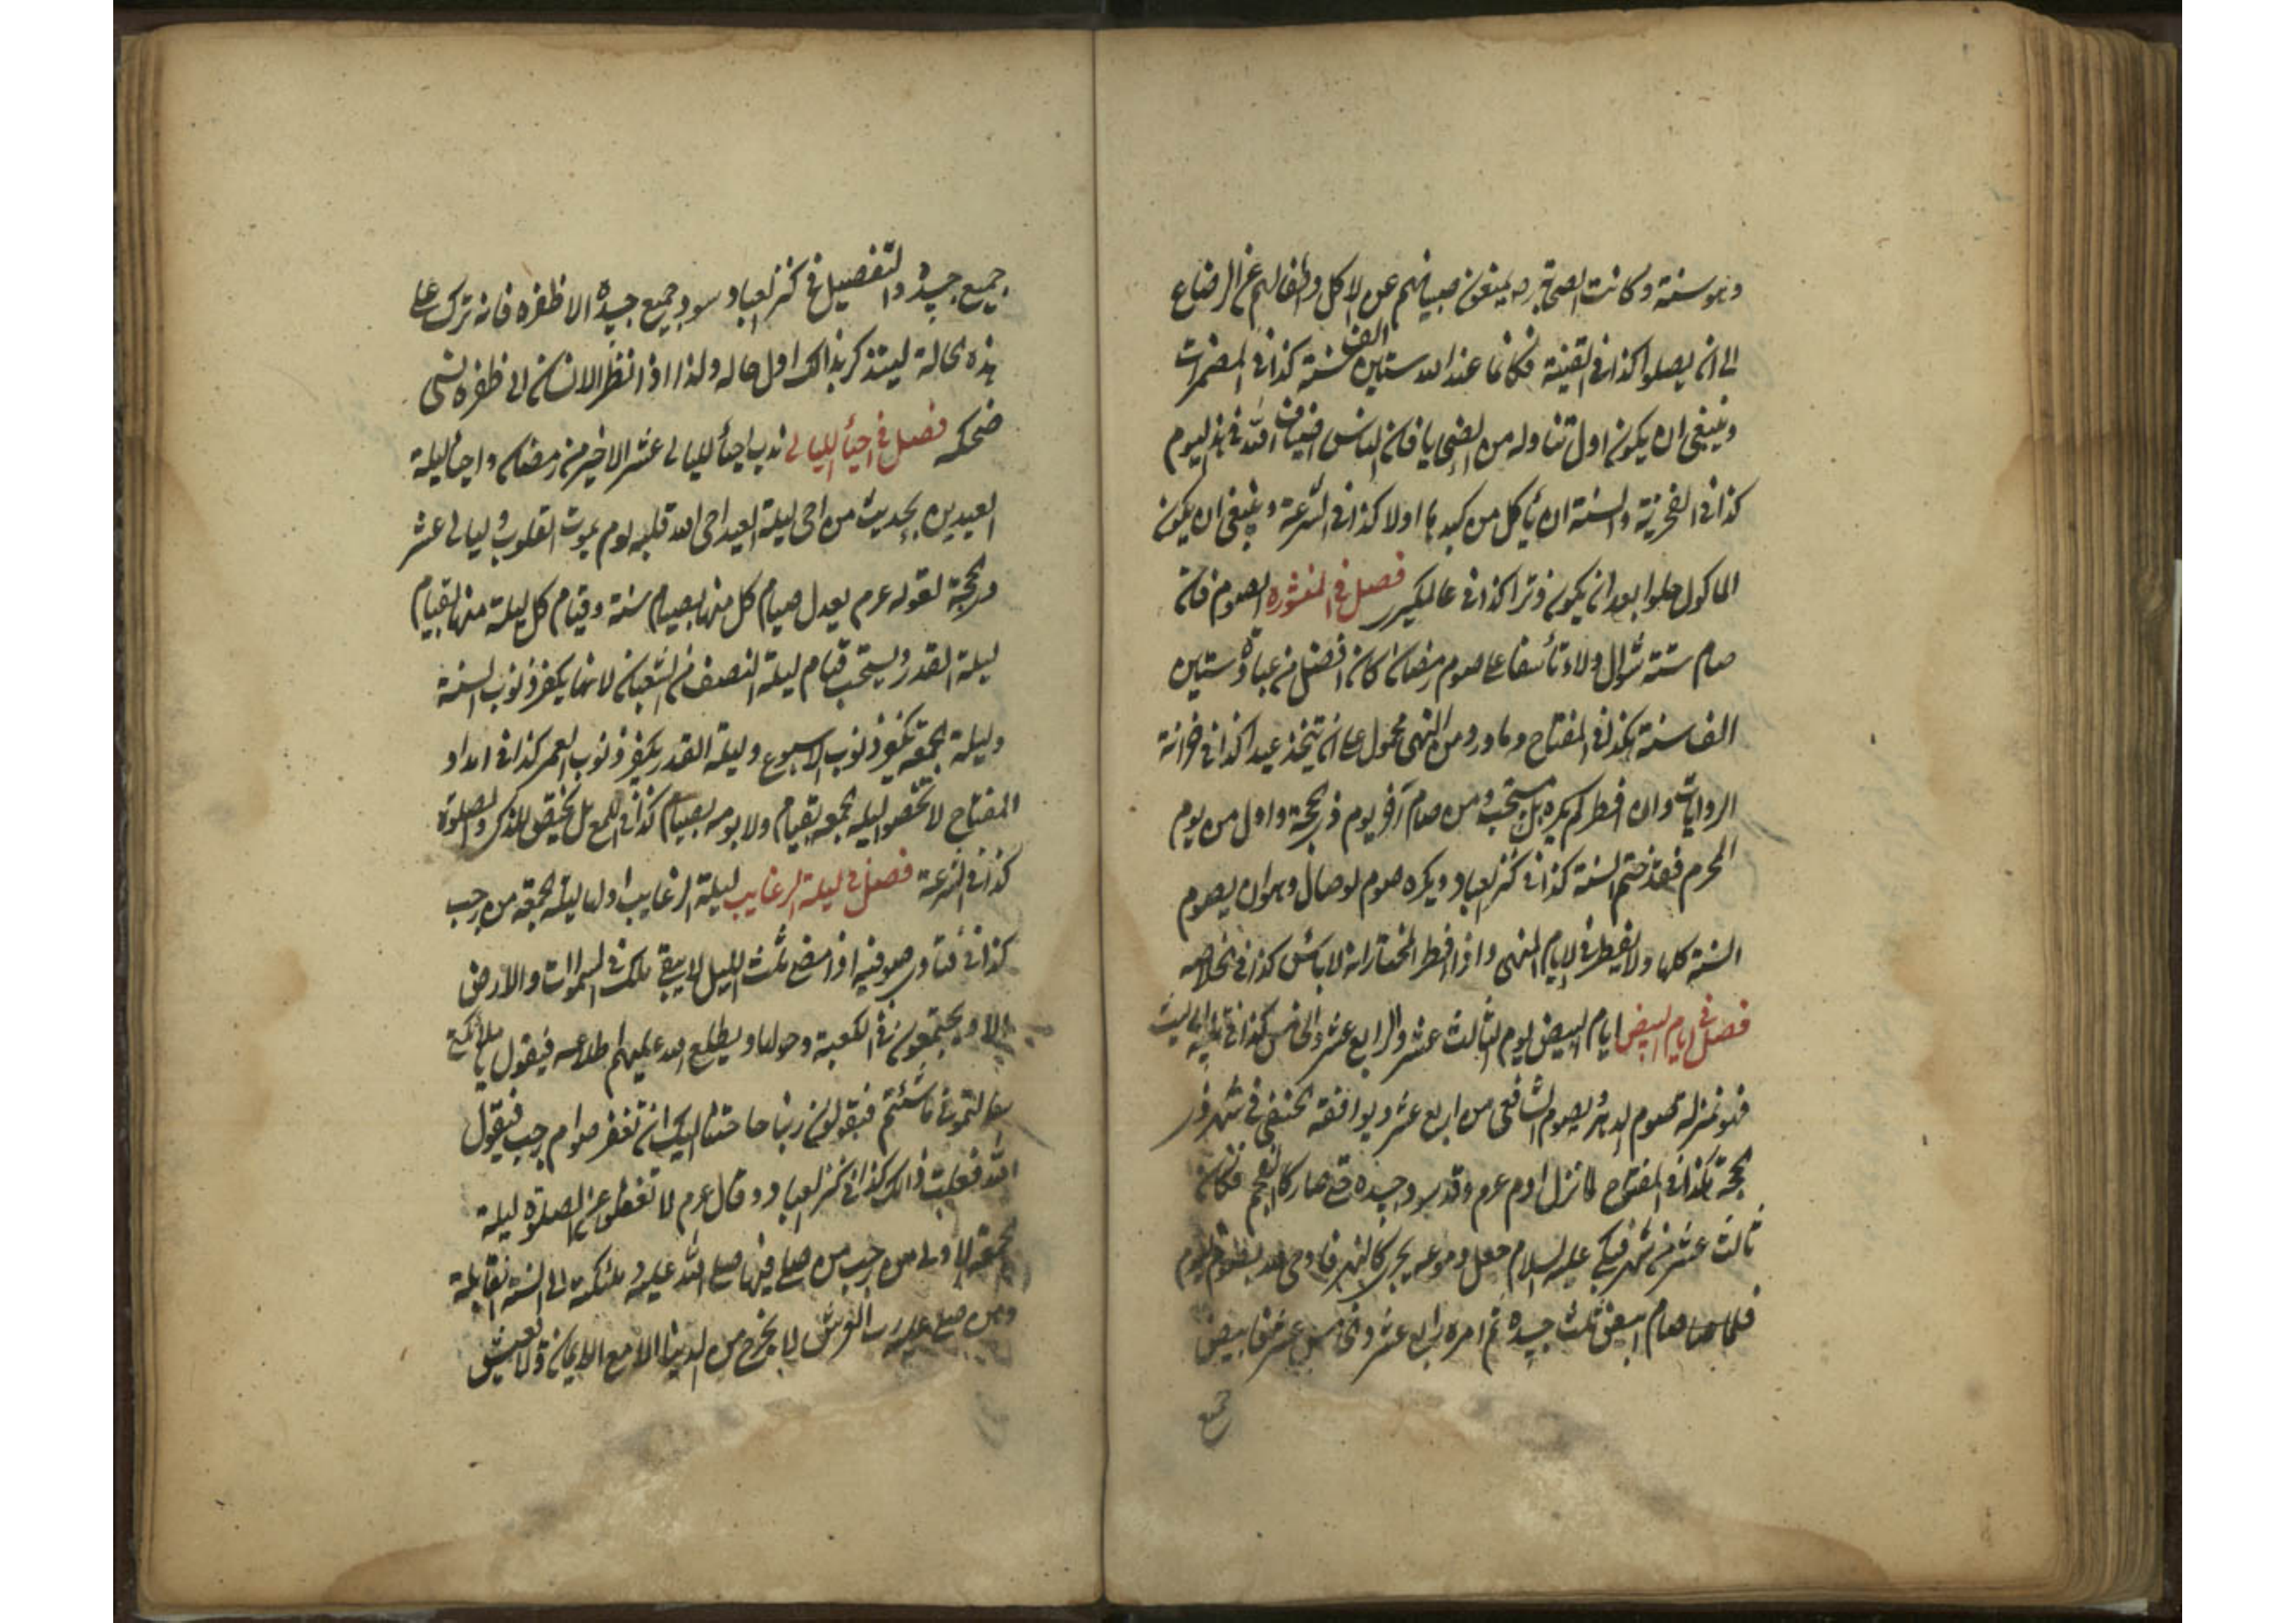 وهو سنة وكانت الصحابة رضـ يمنعون صبيانهم عن الاكل واطفالهم عن الرضاع
الى ان يصلوا كذا فى القنية فكانما عند الله ستين الف سنة كذا فى المضمرات
وينبغى ان يكون اول تناوله من الضحايا فان الناس اضياف الله فى هذا اليوم
كذا فى الفخرية والسنة ان يأكل من كبدها اولا كذا فى الشرعة وينبغى ان يكون
الماكول حلوا بعد ان يكون وترا كذا فى عالمكيرى فصل فى المنثوره الصوم فان
صام ستة شوال ولاء تأسفا على صوم رمضان كان افضل من عبادة ستين
الف سنة هكذا فى المفتاح وما ورد من النهى محمول على انه يتخذ عيدا كذا فى خزانة
الروايات وان افطر لم يكره بل مستحب ومن صام آخر يوم ذى الحجة واول من يوم
المحرم فقد ختم السنة كذا فى كنز العباد ويكره صوم الوصال وهو ان يصوم
السنة كلها ولا يفطر فى الايام المنهى واذا افطر المختار انه لا بأس كذا فى الخلاصه
فصل فى ايام البيض ايام البيض ليوم الثالث عشر والرابع عشر والخامس كذا فى
بمنزلة صوم الدهر ويصوم الشافعى من اربع عشر ويوافقه الحنفى فى شهر ذى
الحجة هكذا فى المفتوح لما نزل ادم عرم وقد سود جسده حتى صار كالفحم فكان
ثالث عشر من شهر فبكى عليه السلام جعل دموعه يجرى كالنهر فاوحى الله بصوم اليوم
فلما صام ابيض ثلث جسده ثم امره رابع عشر وخامس عشر فابيض
جميع
جميع جسده والتفصيل فى كنز العباد سود جميع جسده الا ظفره فانه ترك على
هذه الحالة ليتذكر بذالك اول حاله ولذا اذا نظر الانسان الى ظفره نسى
ضحكه فصل فى احيأ الليالى ندب احيأ الليالى عشر الاخير من رمضان واحيأ ليلة
العيدين بحديث من احى ليلة العيد احى الله قلبه يوم يموت القلوب وليالى عشر
ذى الحجة لقوله عرم يعدل صيام كل منها بصيام سنة وقيام كل ليلة منها بقيام
ليلة القدر ويستحب قيام ليلة النصف من الشعبان لانها يكفر ذنوب السنة
وليلة الجمعة يكفر ذنوب الاسبوع وليلة القدر يكفر ذنوب العمر كذا فى امداد
المفتاح لا تخصوا ليلة الجمعة بقيام ولا يومه بصيام كذا فى اللمع بل يختص للذكر والصلوة
كذا فى الشرعة فصل فى ليلة الرغايب ليلة الرغايب اولها ليلة الجمعة من رجب
كذا فى فتاوى صوفيه اذا مضى ثلث الليل لا يبقى ملك فى السموات والارض
الا ويجتمعون فى الكعبة وحولها ويطلع الله عليهم اطلاعه فيقول يا ملائكتى
ما شئتم فيقولون ربنا حاجتنا اليك ان تغفر صوام رجب فيقول
الله فعلت ذالك كذا فى كنز العباد وقال عرم لا تغفلوا عن الصلوة ليلة
الجمعة الاولى من رجب من صلى فيها صلى الله عليه وملئكته الى السنة القابلة
ومن صلى عليه رب العرش لا يخرج من الدنيا الا مع الايمان